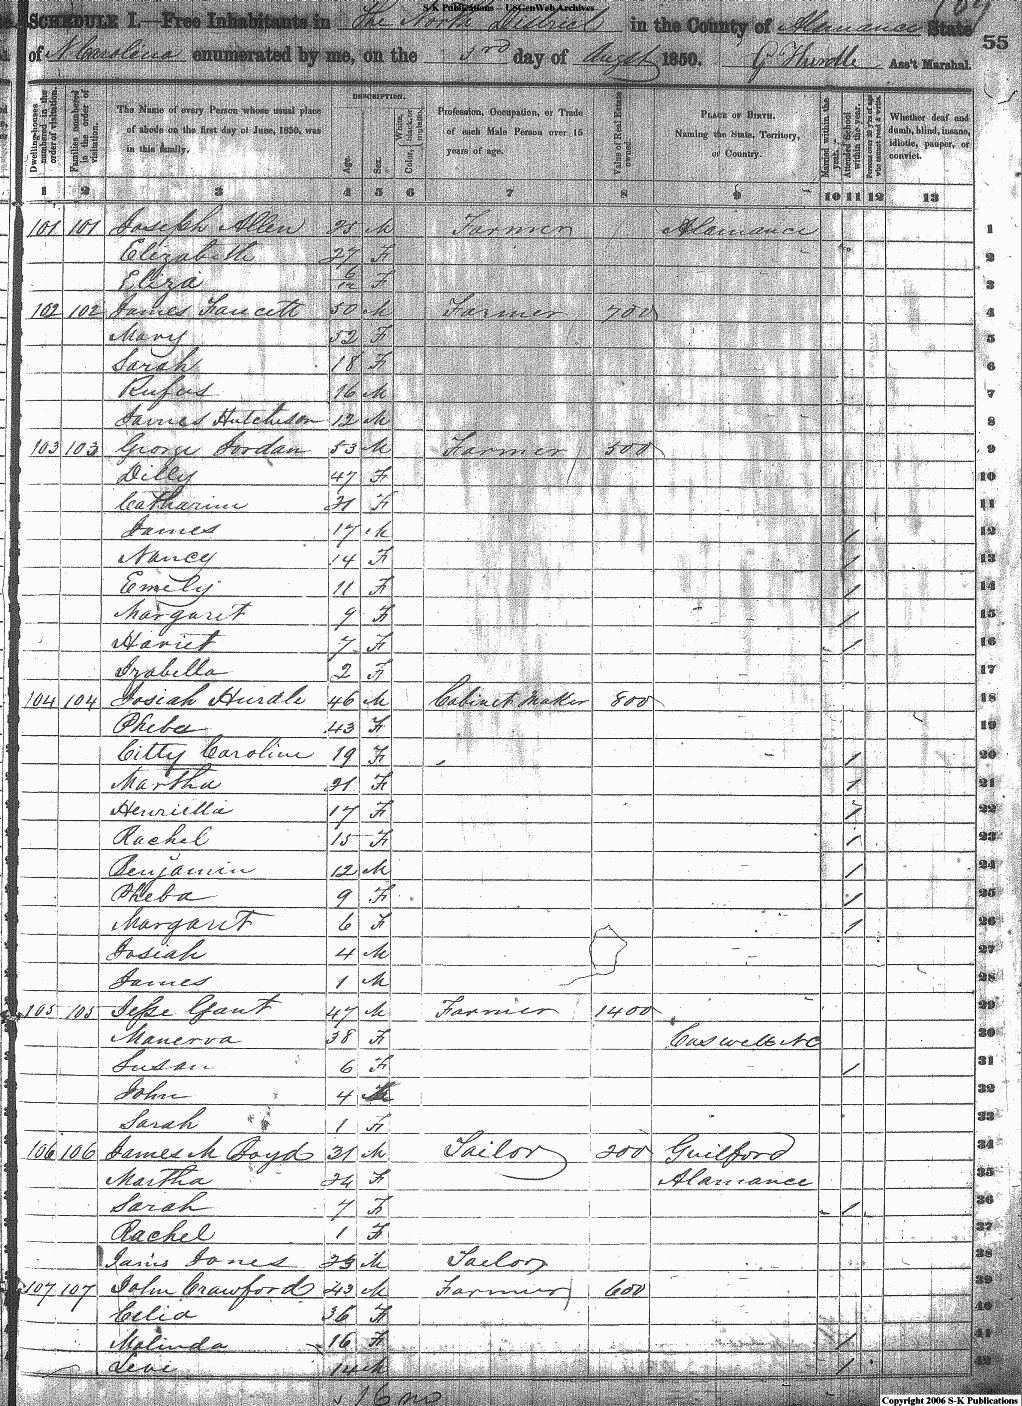 S-K Publications - USGenWeb Archives
SCHEDULE I.—Free Inhabitants in The North District in the County of Alamance State
of N. Carolina enumerated by me, on the 3rd day of Augst 1850. G Hurdle Ass't Marshal.
55
Dwelling-houses numbered in the order of visitation.
Families numbered in the order of visitation.
The Name of every Person whose usual place of abode on the first day of June, 1850, was in this family.
DESCRIPTION.
Age.
Sex.
Color, White, black, or mulatto.
Profession, Occupation, or Trade of each Male Person over 15 years of age.
Value of Real Estate owned.
PLACE OF BIRTH. Naming the State, Territory, or Country.
Married within the year.
Attended School within the year.
Persons over 20 y'rs of age who cannot read & write.
Whether deaf and dumb, blind, insane, idiotic, pauper, or convict.
1 2 3 4 5 6 7 8 9 10 11 12 13
101 101 Joseph Allen 25 M Farmer Alamance 1
Elizabeth 27 F 2
Eliza 6/12 F 3
102 102 James Faucett 50 M Farmer 700 4
Mary 52 F 5
Sarah 18 F 6
Rufus 16 M 7
James Hutcheson 12 M 8
103 103 George Jordan 53 M Farmer 500 9
Dilly 47 F 10
Catharine 21 F 11
James 17 M 1 12
Nancy 14 F 1 13
Emely 11 F 1 14
Margaret 9 F 1 15
Hariet 7 F 1 16
Izabella 2 F 17
104 104 Josiah Hurdle 46 M Cabinet Maker 800 18
Pheba 43 F 19
Citty Caroline 19 F 1 20
Martha 21 F 1 21
Henrietta 17 F 1 22
Rachel 15 F 1 23
Benjamin 12 M 1 24
Pheba 9 F 1 25
Margaret 6 F 1 26
Josiah 4 M 27
James 1 M 28
105 105 Jesse Gant 47 M Farmer 1400 29
Manerva 38 F Caswell NC 30
Susan 6 F 1 31
John 4 M 32
Sarah 1 F 33
106 106 James M Boyd 31 M Tailor 200 Guilford 34
Martha 24 F Alamance 35
Sarah 7 F 1 36
Rachel 1 F 37
James Jones 23 M Tailor 38
107 107 John Crawford 43 M Farmer 600 39
Celia 36 F 40
Malinda 16 F 1 41
Levi 14 M 1 42
16 mo
Copyright 2006 S-K Publications